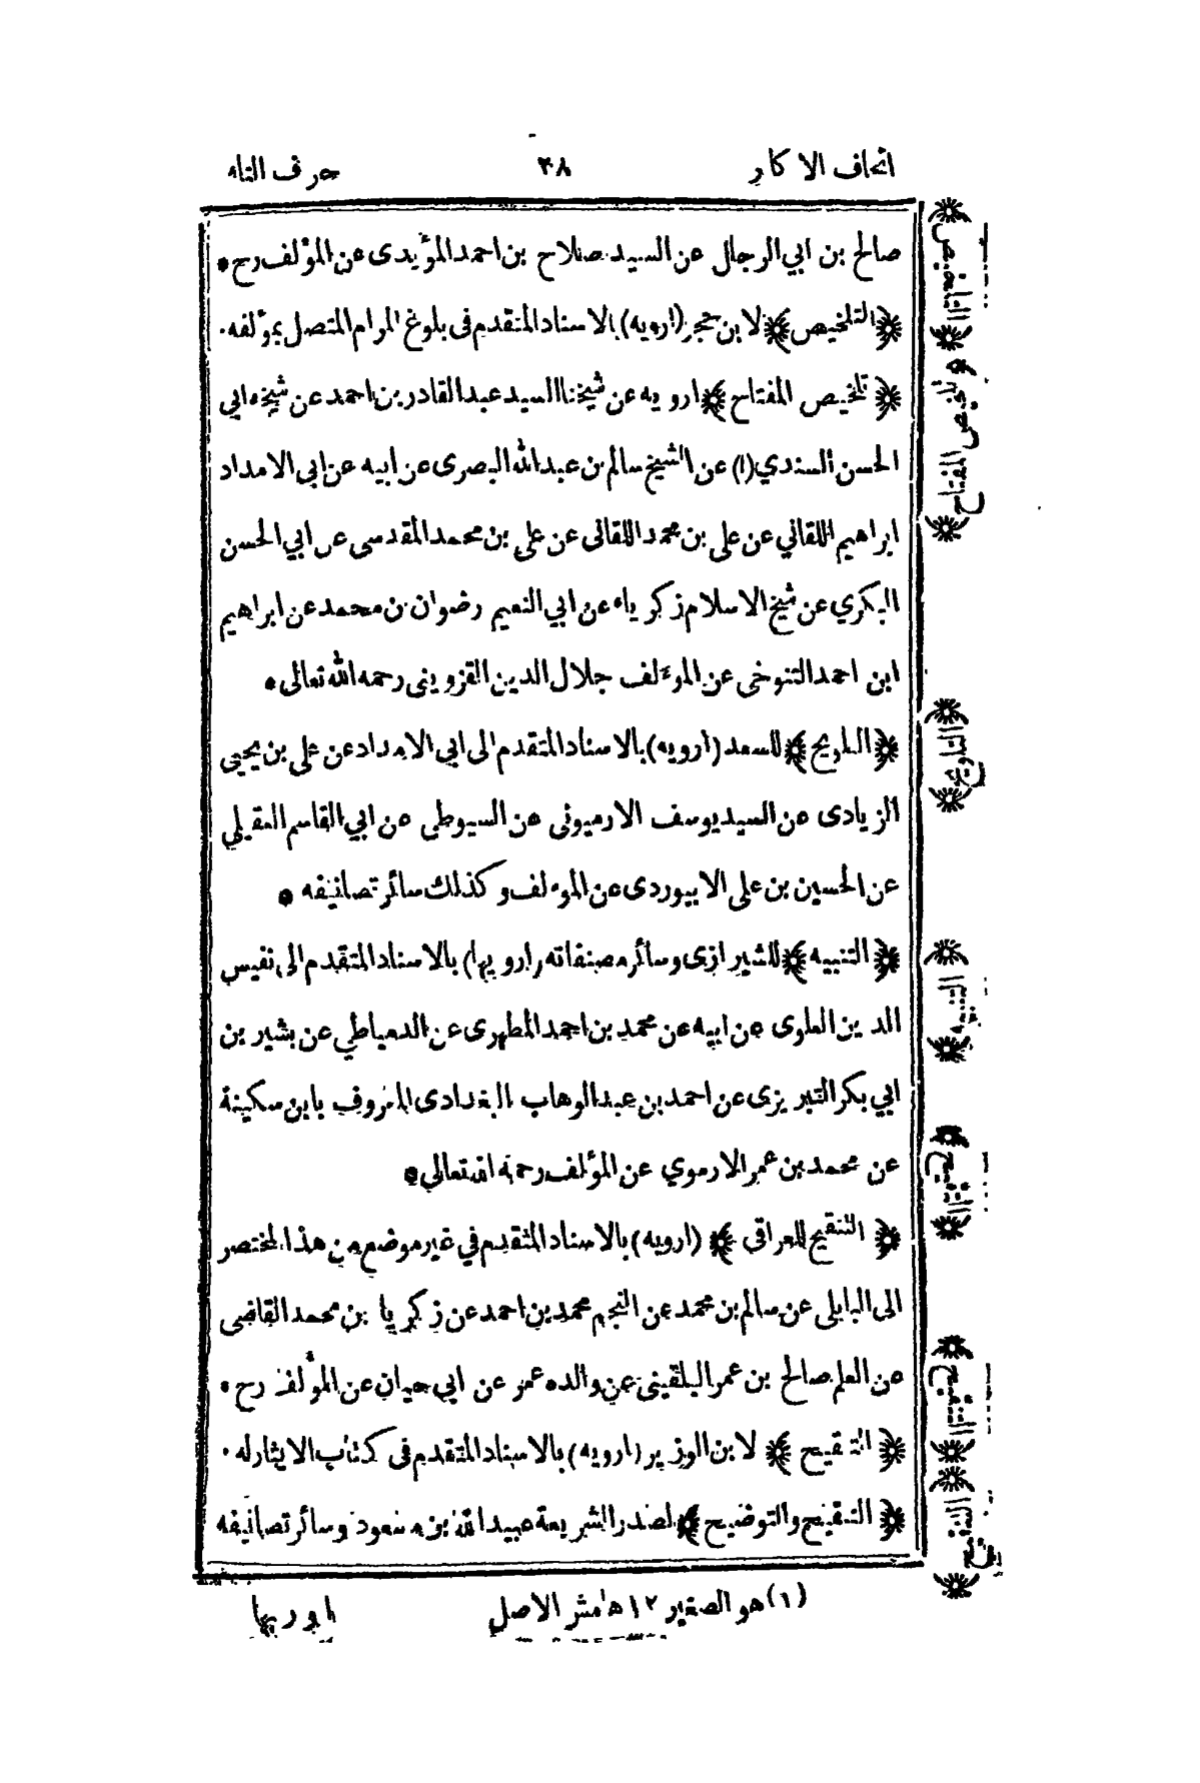 اتحاف الاكابر
٢٨
حرف التاء
صالح بن ابي الرجال عن السيد صلاح بن احمد المؤيدى عن المؤلف رح •
﴿ التلخيص ﴾ لابن حجر (ارويه) بالاسناد المتقدم فى بلوغ المرام المتصل بمؤلفه •
﴿ تلخيص المفتاح ﴾ ارويه عن شيخنا السيد عبد القادر بن احمد عن شيخه ابي
الحسن السندي (١) عن الشيخ سالم بن عبد الله البصرى عن ابيه عن ابي الامداد
ابراهيم اللقاني عن على بن محمد اللقانى عن على بن محمد المقدسى عن ابي الحسن
البكري عن شيخ الاسلام زكرياء عن ابي النعيم رضوان بن محمد عن ابراهيم
ابن احمد التنوخى عن الموءلف جلال الدين القزوينى رحمه الله تعالى •
﴿ التلويح ﴾ للسعد (ارويه) بالاسناد المتقدم الى ابي الامداد عن على بن يحيى
الزيادى عن السيد يوسف الارميونى عن السيوطى عن ابي القاسم العقيلي
عن الحسين بن على الابيوردى عن الموءلف وكذلك سائر تصانيفه •
﴿ التنبيه ﴾ للشيرازى وسائر مصنفاته (ارويها) بالاسناد المتقدم الى نفيس
الدين العلوى عن ابيه عن محمد بن احمد المطهرى عن الدمياطي عن بشير بن
ابي بكر التبريزى عن احمد بن عبد الوهاب البغدادى المعروف بابن سكينة
عن محمد بن عمر الارموي عن المؤلف رحمه الله تعالي •
﴿ التنقيح للعراقى ﴾ (ارويه) بالاسناد المتقدم في غير موضع من هذا المختصر
الى البابلى عن سالم بن محمد عن النجم محمد بن احمد عن زكريا بن محمد القاضى
عن العلم صالح بن عمر البلقينى عن والده عمر عن ابي حيان عن المؤلف رح •
﴿ التنقيح ﴾ لابن الوزير (ارويه) بالاسناد المتقدم فى كتاب الايثار له •
﴿ التنقيح والتوضيح ﴾ لصدر الشريعة عبيد الله بن مسعود وسائر تصانيفه
(١) هو الصغير ١٢ هامش الاصل
ارويها
التلخيص
تلخيص المفتاح
التلويح
التنبيه
التنقيح
التنقيح
التنقيح